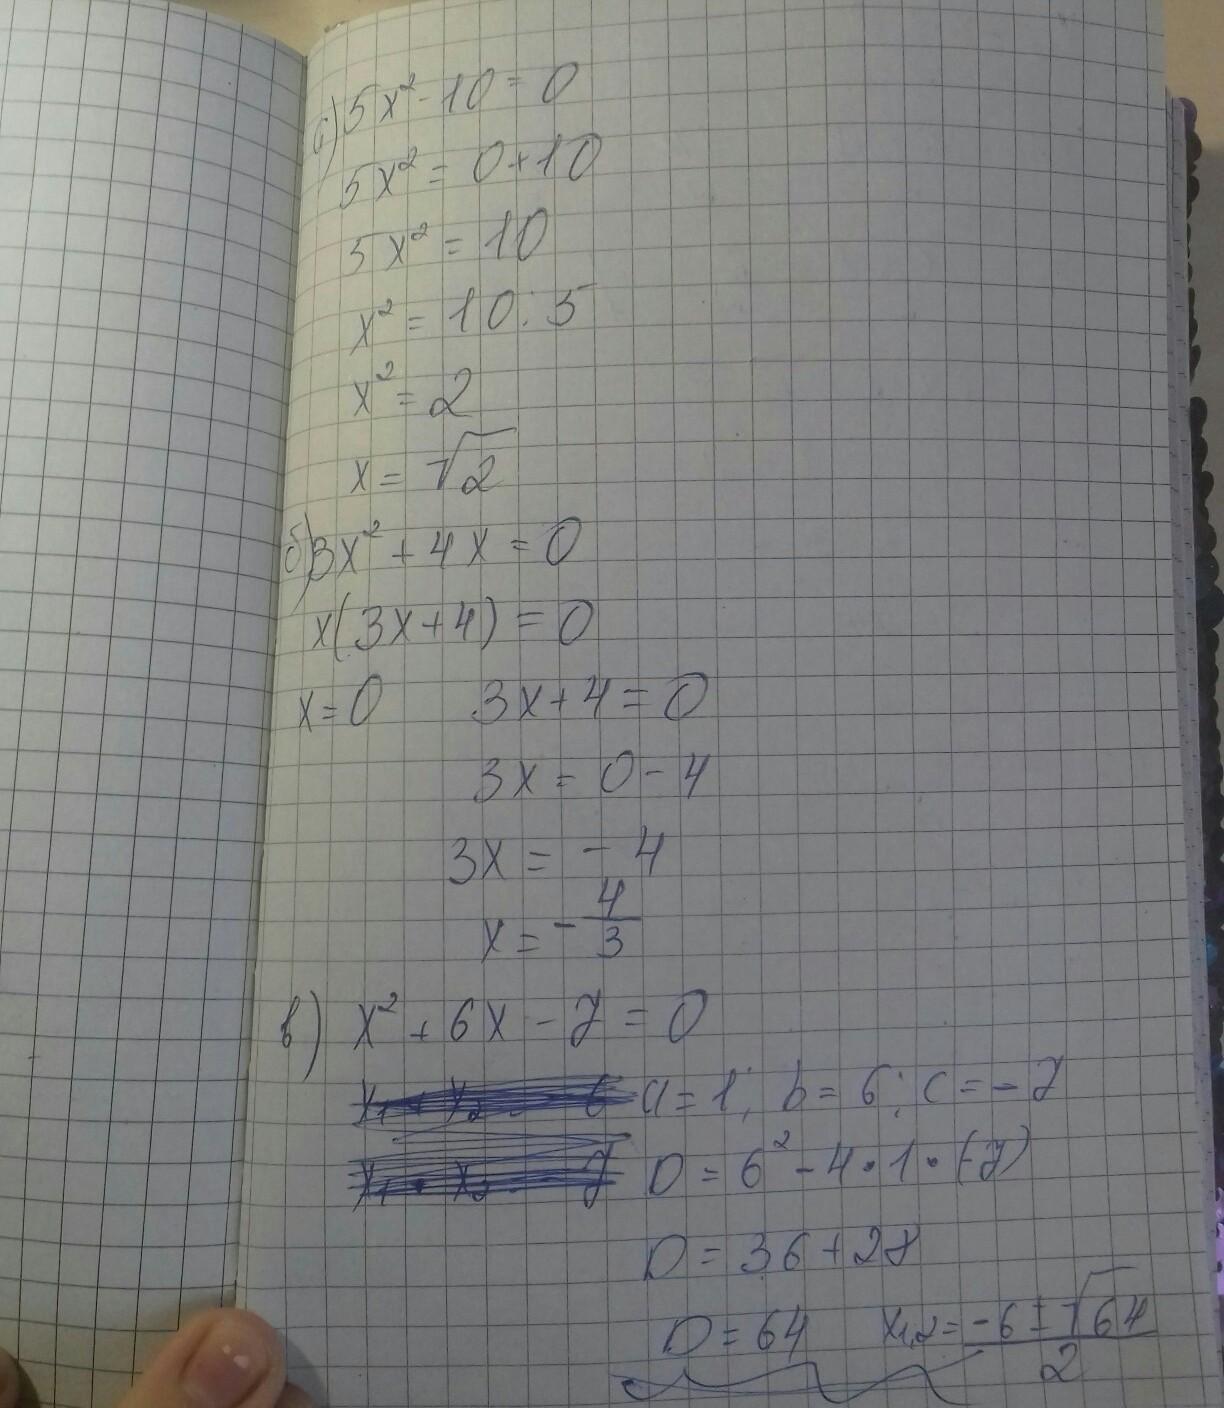 а) 5x² - 10 = 0
5x² = 0 + 10
5x² = 10
x² = 10 : 5
x² = 2
x = √2
б) 3x² + 4x = 0
x(3x + 4) = 0
x = 0 3x + 4 = 0
3x = 0 - 4
3x = - 4
x = - 4/3
в) x² + 6x - 7 = 0
a = 1; b = 6; c = - 7
D = 6² - 4 • 1 • (-7)
D = 36 + 28
D = 64 x1,2 = (-6 ± √64)/2